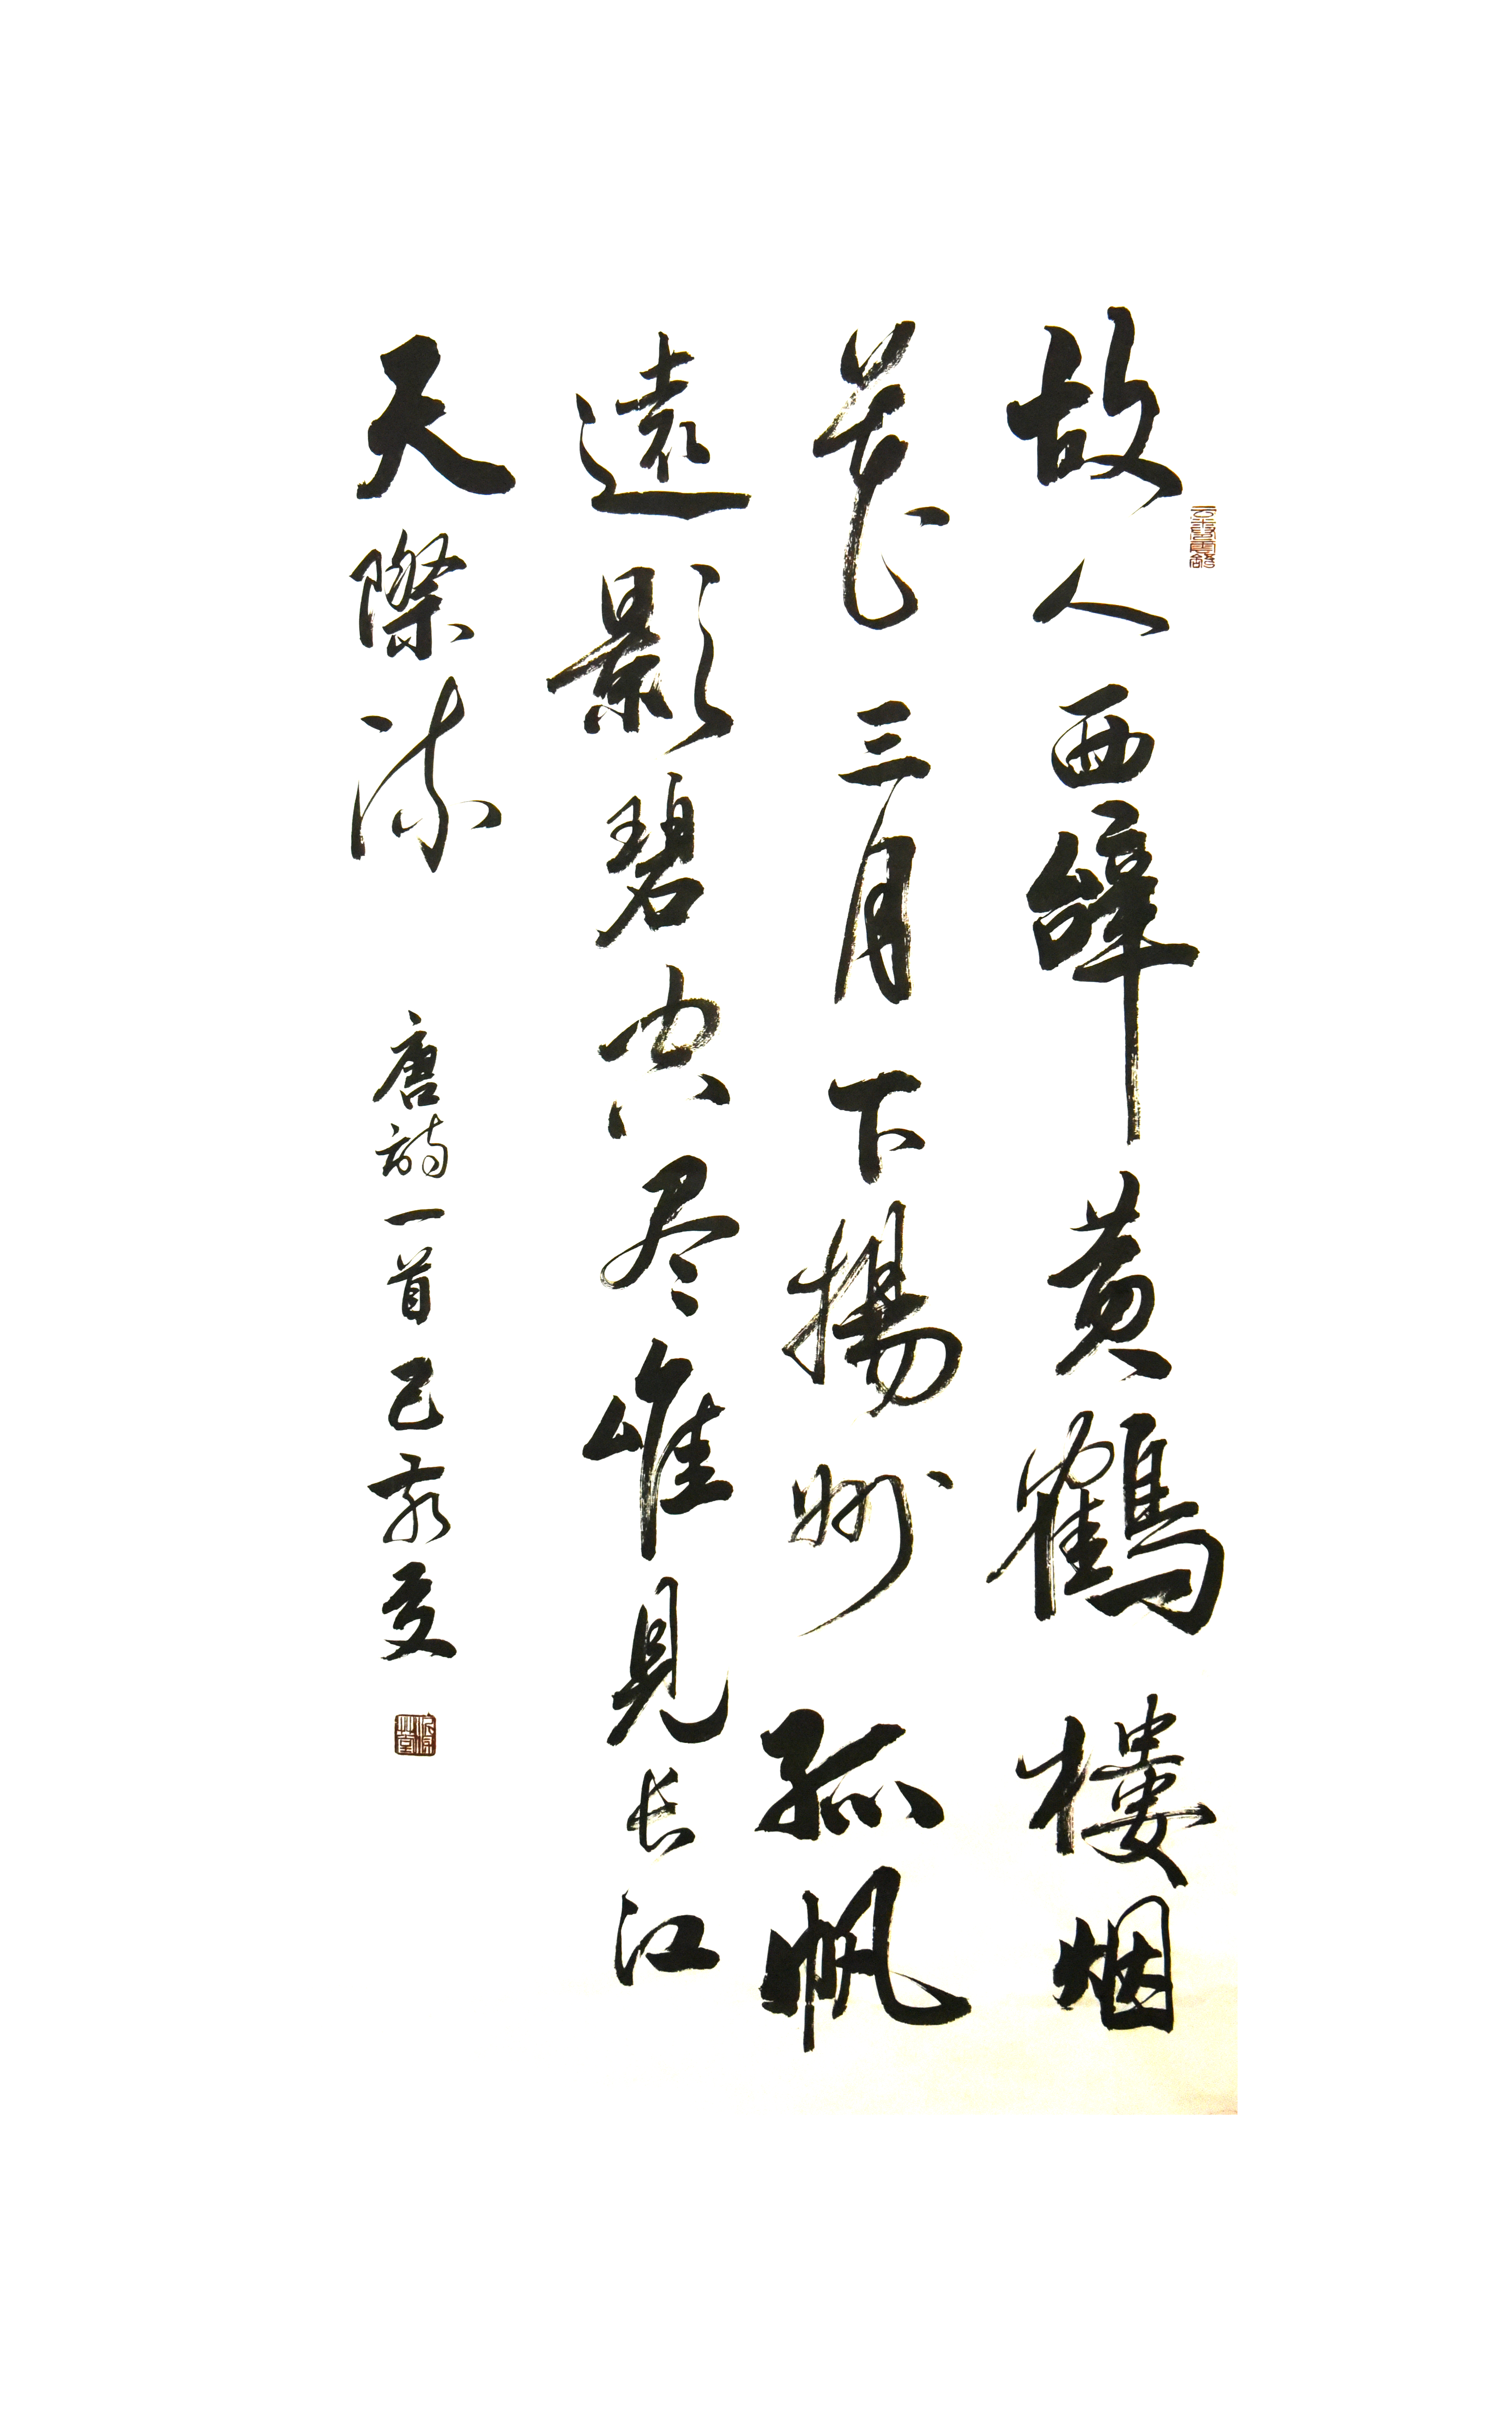 故人西辤黄鶴樓烟
花三月下揚州孤帆
遠影碧空尽唯見長江
天際流
唐詩一首己亥夏